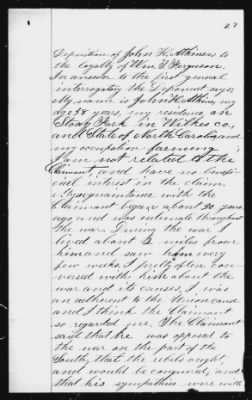 27
Deposition of John H. Atkins as to
the loyalty of Wm. F. Ferguson.
In answer to the first general
interrogatory the Deponent says
My name is John H. Atkins, my
age 38 years, my residence on
Stony Fork in Wilkes co,
and State of North Carolina and
my occupation farming
I am not related to the
Claimant, and have no benefi-
cial interest in the claim
My acquaintance with the
Claimant began about 30 years
ago and was intimate throughout
the war. During the war I
lived about 2 miles from
him and saw him every
few weeks. I pretty often con-
versed with him about the
war and its causes, I was
an adherent to the Union cause
and I think the Claimant
so regarded me. The Claimant
said that he was opposed to
the war on the part of the
South, that the rebels ought,
and would be conquered, and
that his sympathies were with